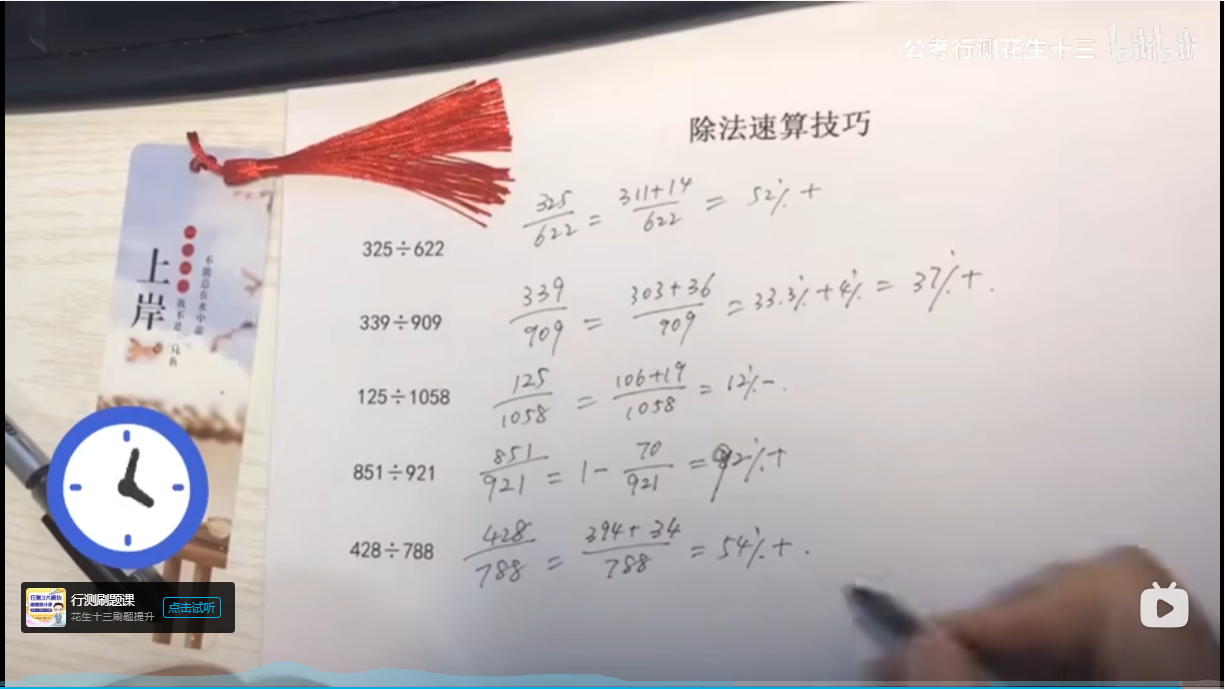 公考行测花生十三 bilibili
除法速算技巧
325÷622
325/622 = 311+14/622 = 52%+
339÷909
339/909 = 303+36/909 = 33.3%+4% = 37%+.
125÷1058
125/1058 = 106+19/1058 = 12%-.
851÷921
851/921 = 1-70/921 = 92%+
428÷788
428/788 = 394+34/788 = 54%+.
上岸
行测刷题课
花生十三刷题提升
点击试听